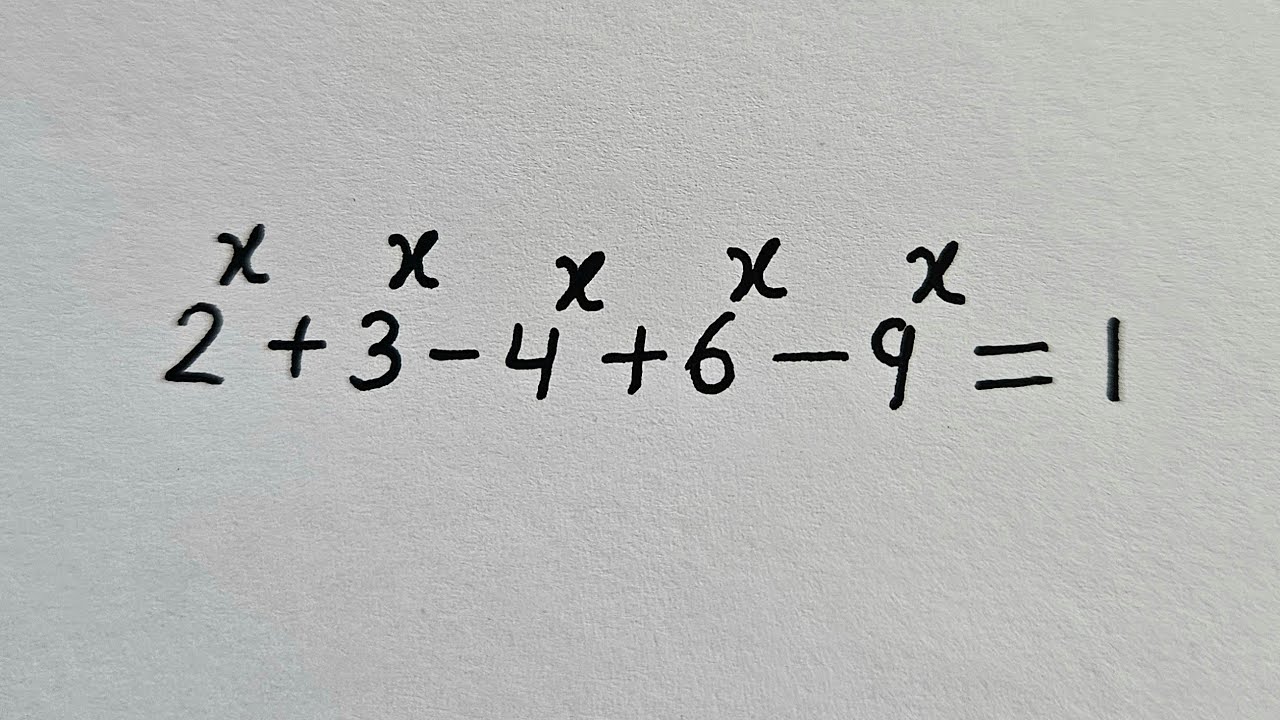 2ˣ + 3ˣ - 4ˣ + 6ˣ - 9ˣ = 1